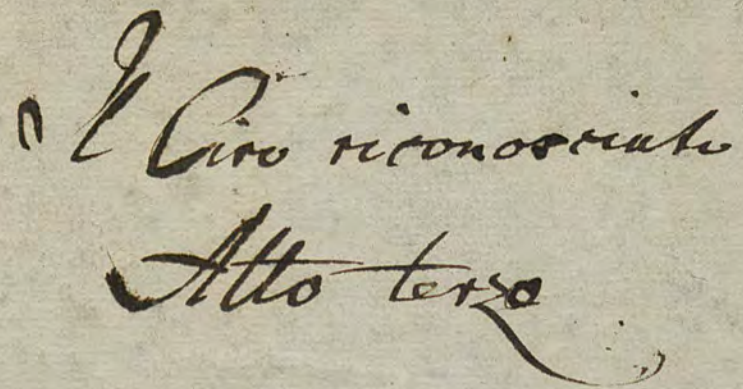 Il Ciro riconosciuto
Atto terzo